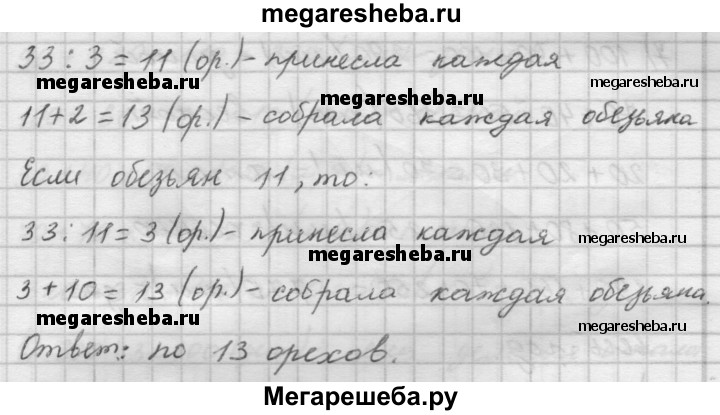 megaresheba.ru
33 : 3 = 11 (ор.) - принесла каждая
megaresheba.ru megaresheba.ru megaresheba.ru
11 + 2 = 13 (ор.) - собрала каждая обезьяна
Если обезьян 11, то:
33 : 11 = 3 (ор.) - принесла каждая
megaresheba.ru megaresheba.ru
3 + 10 = 13 (ор.) - собрала каждая обезьяна.
megaresheba.ru megaresheba.ru
Ответ: по 13 орехов.
Мегарешеба.ру